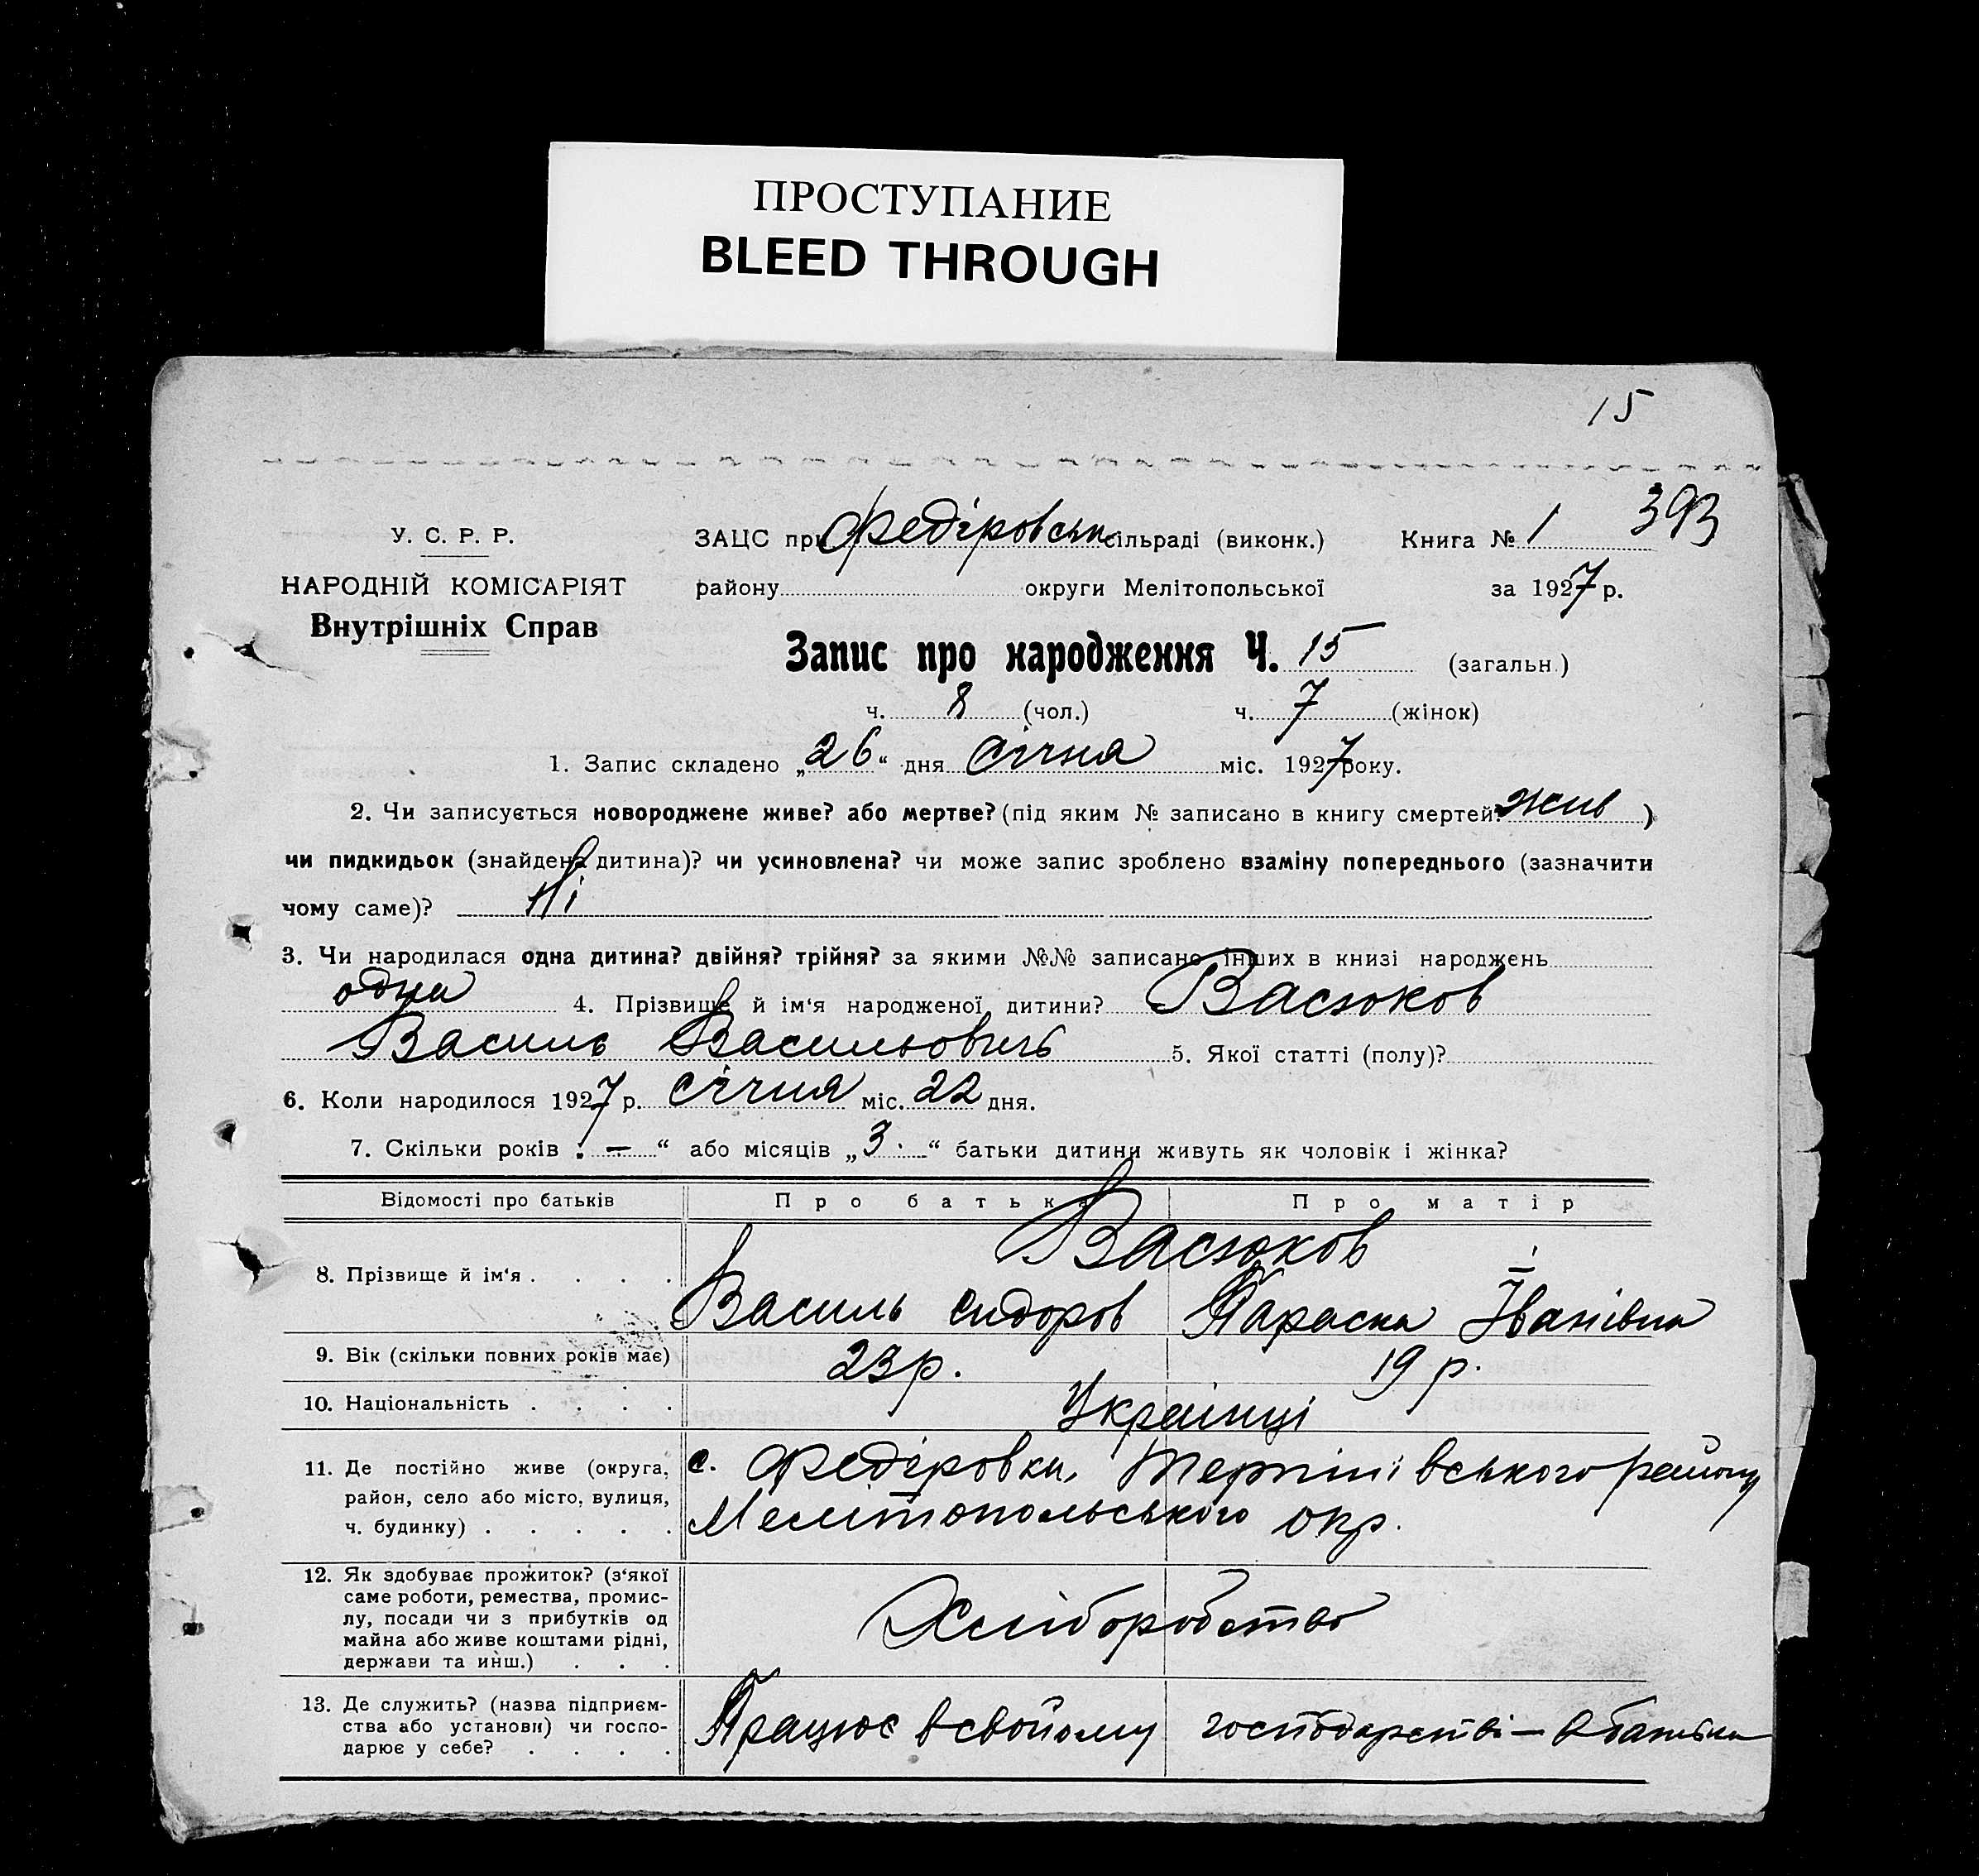 ПРОСТУПАНИЕ
BLEED THROUGH
15
У. С. Р. Р.
НАРОДНІЙ КОМІСАРІЯТ
Внутрішніх Справ
ЗАЦС при Федіровськ. сільраді (виконк.) Книга № 1 393
району округи Мелітопольської за 1927 р.
Запис про народження Ч. 15 (загальн.)
ч. 8 (чол.) ч. 7 (жінок)
1. Запис складено „26“ дня січня міс. 1927 року.
2. Чи записується новороджене живе? або мертве? (під яким № записано в книгу смертей? жив )
чи пидкидьок (знайдена дитина)? чи усиновлена? чи може запис зроблено взаміну попереднього (зазначити
чому саме)? Ні
3. Чи народилася одна дитина? двійня? трійня? за якими №№ записано інших в книзі народжень
одна 4. Прізвище й ім‘я народженої дитини? Васюков
Василь Васильович 5. Якої статті (полу)?
6. Коли народилося 1927 р. січня міс. 22 дня.
7. Скільки років „ — “ або місяців „3“ батьки дитини живуть як чоловік і жінка?
Відомості про батьків Про батька Про матір
Васюков
8. Прізвище й ім‘я . . . .
Василь Сидоров Параска Іванівна
9. Вік (скільки повних років має) 23 р. 19 р.
10. Національність . . . . Українці
11. Де постійно живе (округа, с. Федіровки, Терпінівського району
район, село або місто, вулиця,
ч. будинку) . . . . . Мелітопольського окр.
12. Як здобуває прожиток? (з‘якої
саме роботи, ремества, промис-
лу, посади чи з прибутків од
майна або живе коштами рідні,
держави та инш.) . . .
Хліборобство
13. Де служить? (назва підприєм-
ства або установи) чи госпо-
дарює у себе? . . . .
Працює в свойому господарстві — в батька